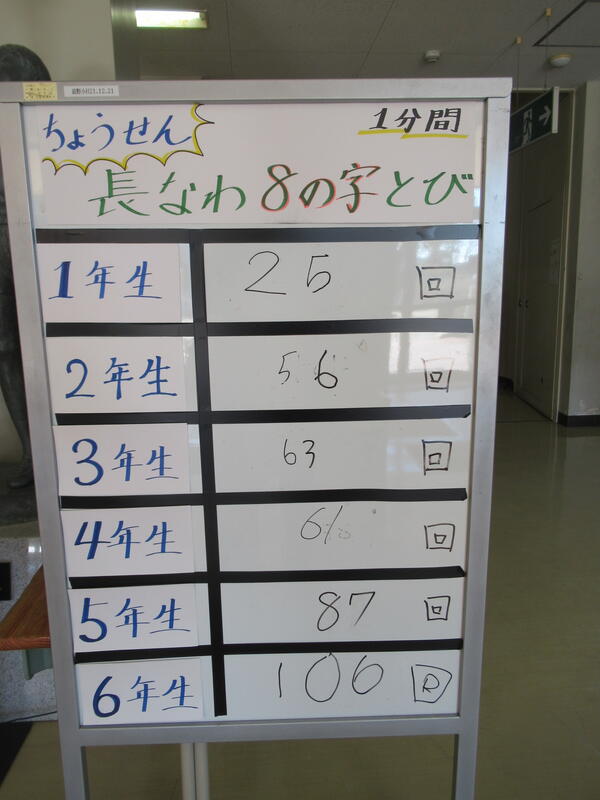 ちょうせん 1分間
長なわ8の字とび
1年生 25 回
2年生 56 回
3年生 63 回
4年生 回
5年生 87 回
6年生 106 回